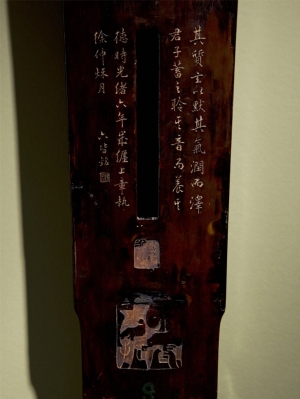 其質玄以默其氣潤而澤
君子蓄之聆其音而養其
德時光緒六年歲上章執
徐仲秌月